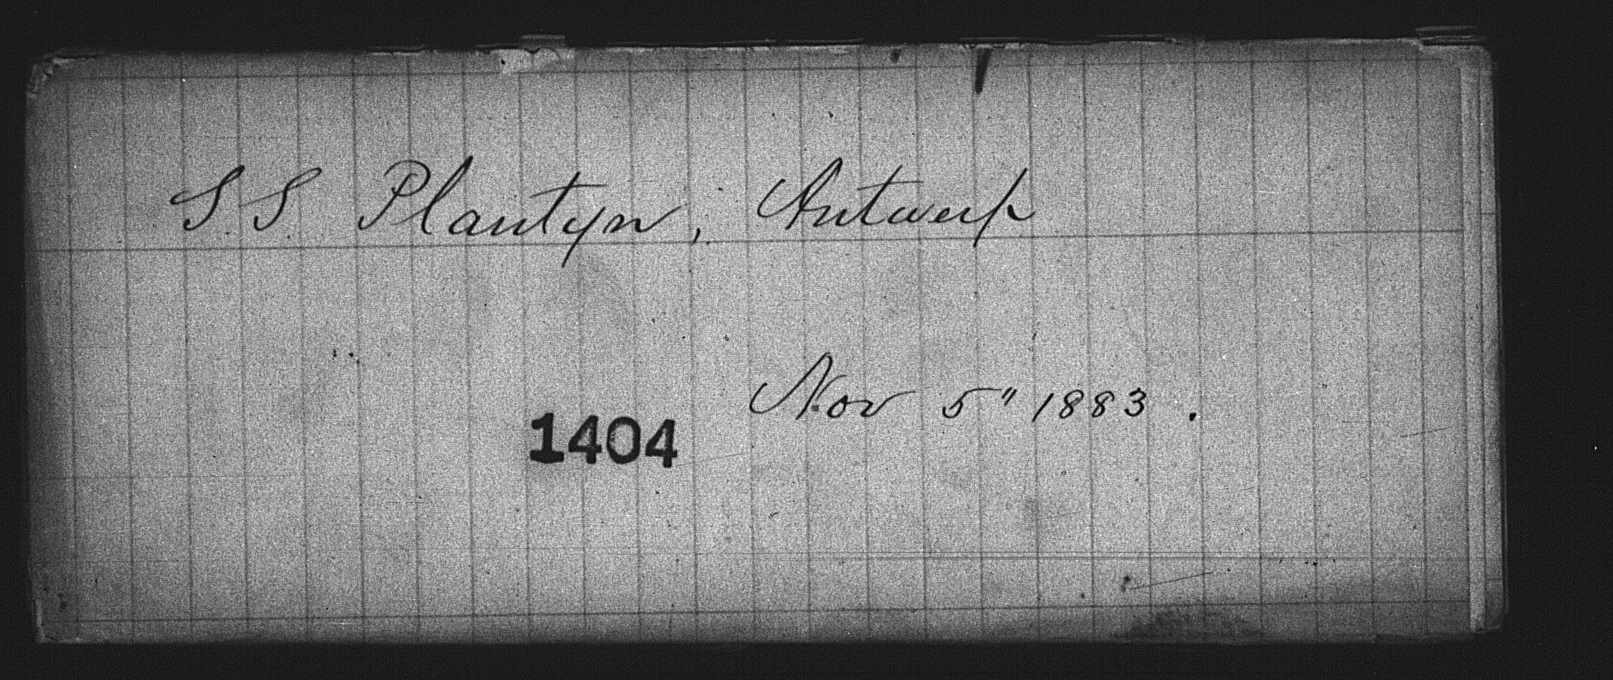 S.S. Plantyn, Antwerp
Nov 5" 1883.
1404